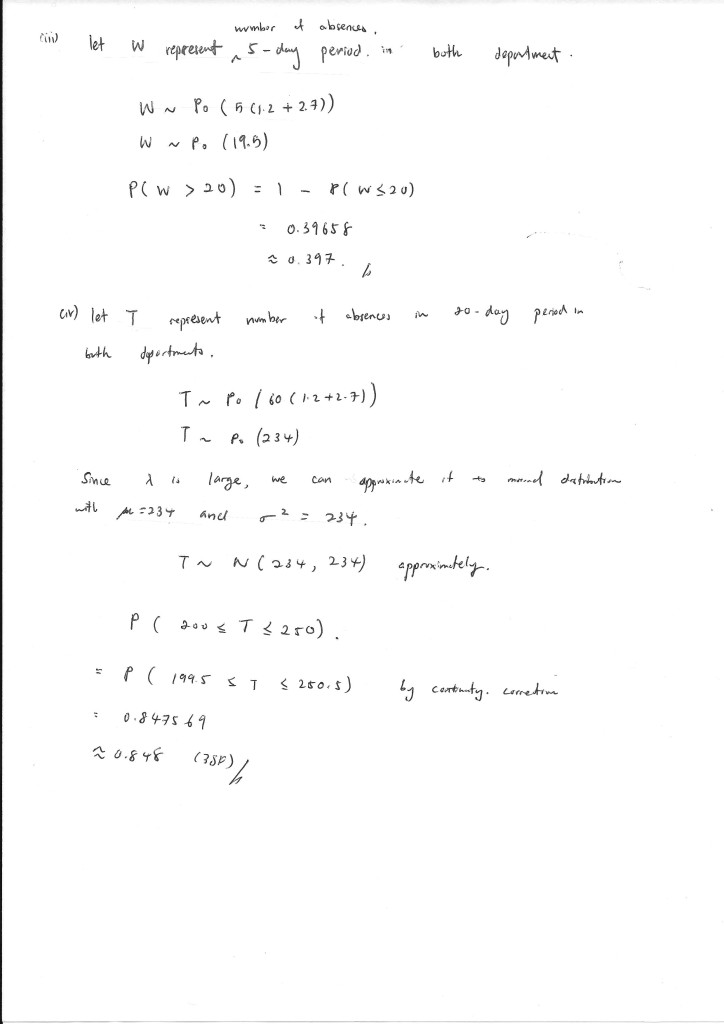 number of absences.
(iii) let W represent ^ 5-day period. in both department.
W ~ Po (5(1.2 + 2.7))
W ~ Po (19.5)
P(W > 20) = 1 - P(W ≤ 20)
= 0.39658
≈ 0.397.
(iv) let T represent number of absences in 20-day period in
both departments.
T ~ Po (60(1.2+2.7))
T ~ Po (234)
Since λ is large, we can approximate it to normal distribution
with μ = 234 and σ² = 234.
T ~ N(234, 234) approximately.
P(200 ≤ T ≤ 250).
= P(199.5 ≤ T ≤ 250.5) by continuity. correction
= 0.847569
≈ 0.848 (3SF)